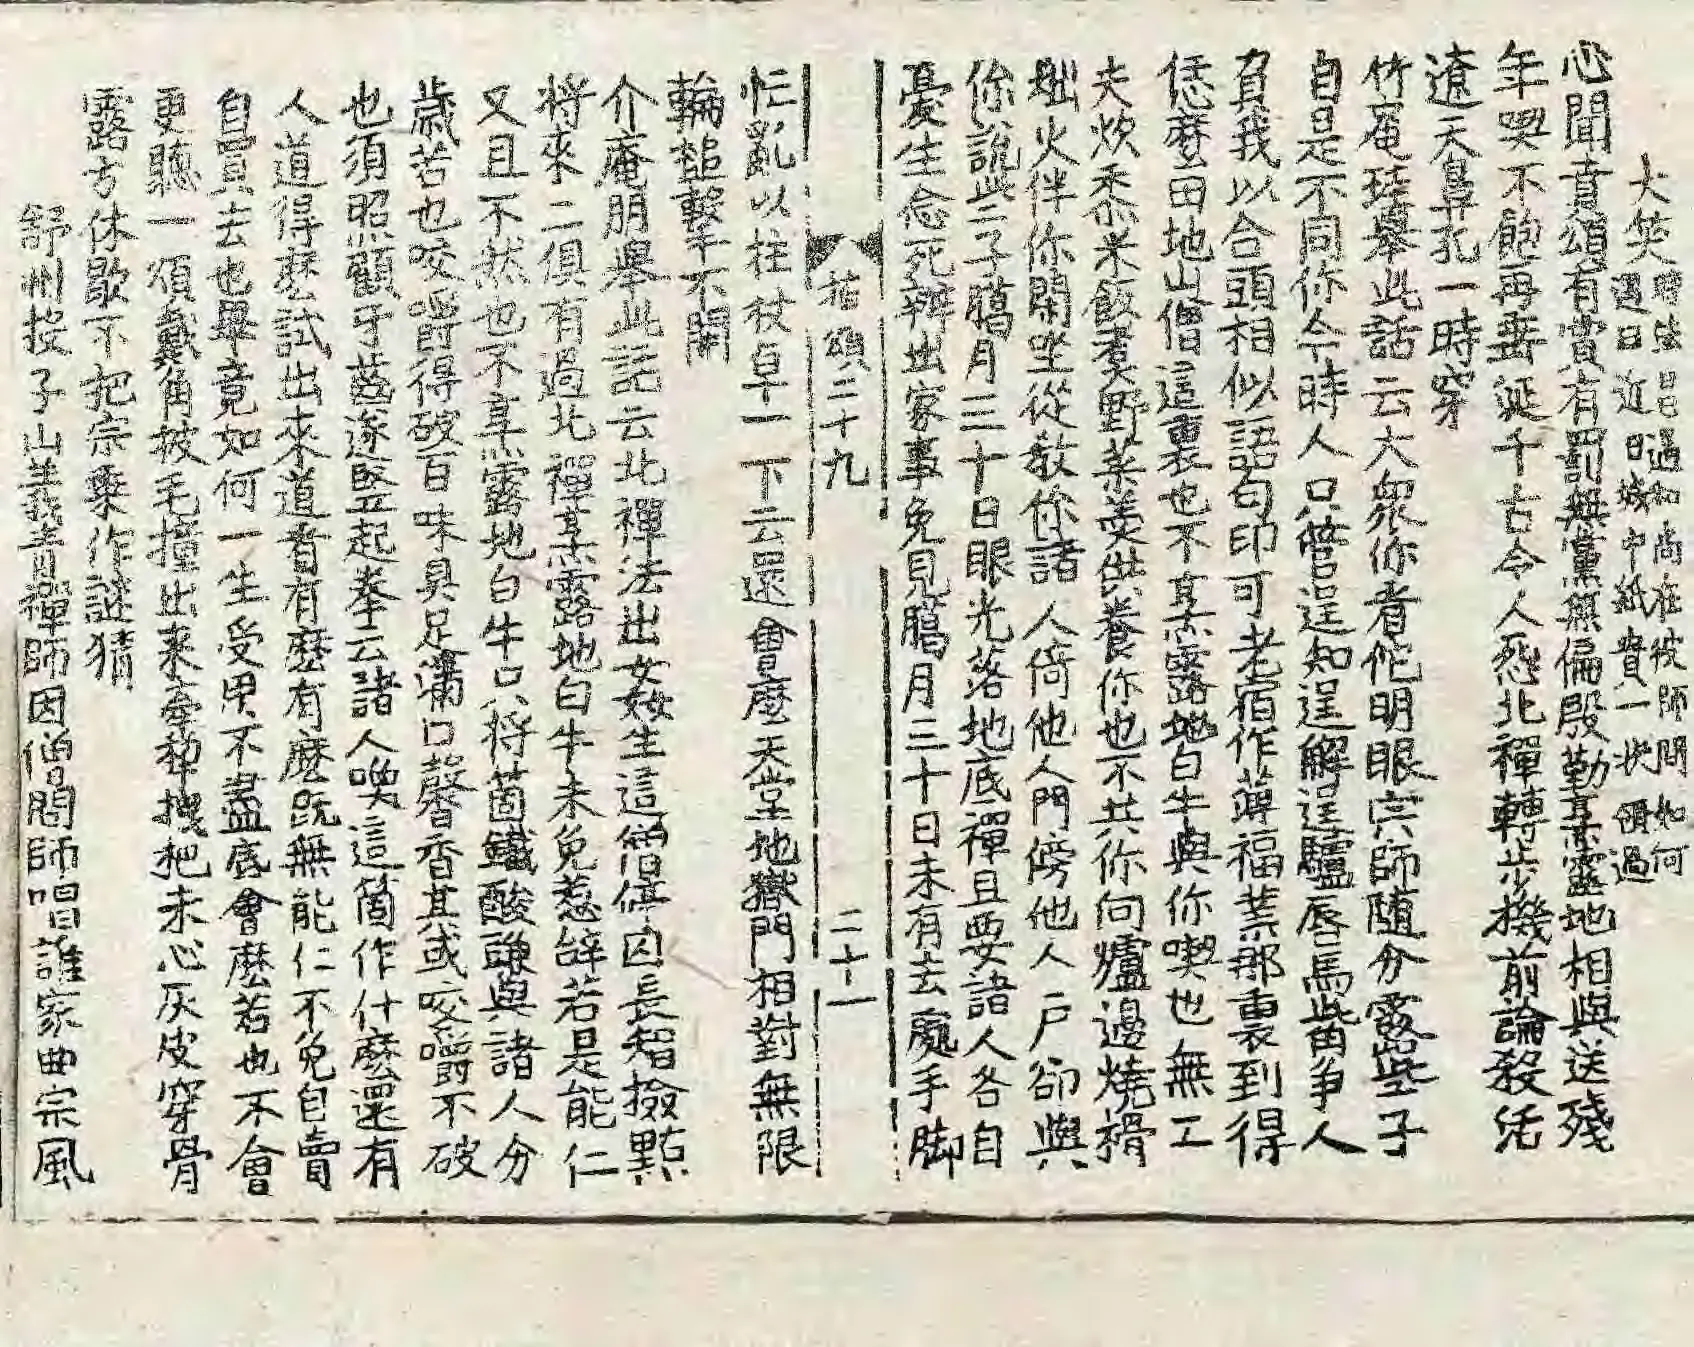 大笑時法昌遇和尚在彼師問如何
遇日近日城中紙貴一狀領過
心聞賁頌有賞有罰無黨無偏殷勤烹露地相與送殘
年喫不飽再垂涎千古令人怨北禪轉步機前論殺活
遼天鼻孔一時穿
竹菴珪舉此話云大衆你看佗明眼宗師随分露些子
自是不同你今時人只管逞知逞解逞驢唇馬觜爭人
負我以合頭相似語句印可老宿作薄福業那裏到得
恁麼田地山僧這裏也不烹露地白牛與你喫也無工
夫炊黍米飯煮野菜羹供養你也不共你向爐邊燒榾
柮火伴你閑坐從教你諸人倚他人門傍他人户卻與
你說些子臈月三十日眼光落地底禪且要諸人各自
憂生念死辦出家事免見臈月三十日未有去處手脚
拈頌二十九 二十一
忙亂以柱杖卓一下云還會麼天堂地獄門相對無限
輪鎚擊不開
介庵朋舉此話云北禪法出姧生這僧停囚長智撿點
将來二俱有過北禪烹露地白牛未免惹辞若是能仁
又且不然也不烹露地白牛只将箇鐵酸豏與諸人分
歲苦也咬嚼得破百味具足滿口馨香其或咬嚼不破
也須照顧牙齒遂竪起拳云諸人喚這箇作什麼還有
人道得麼試出來道看有麼有麼旣無能仁不免自賣
自買去也畢竟如何一生受用不盡底會麼若也不會
更聽一頌戴角披毛撞出来牽犂拽杷未心灰皮穿骨
露方休歇不把宗乘作謎猜
舒州投子山義青禪師因僧問師唱誰家曲宗風